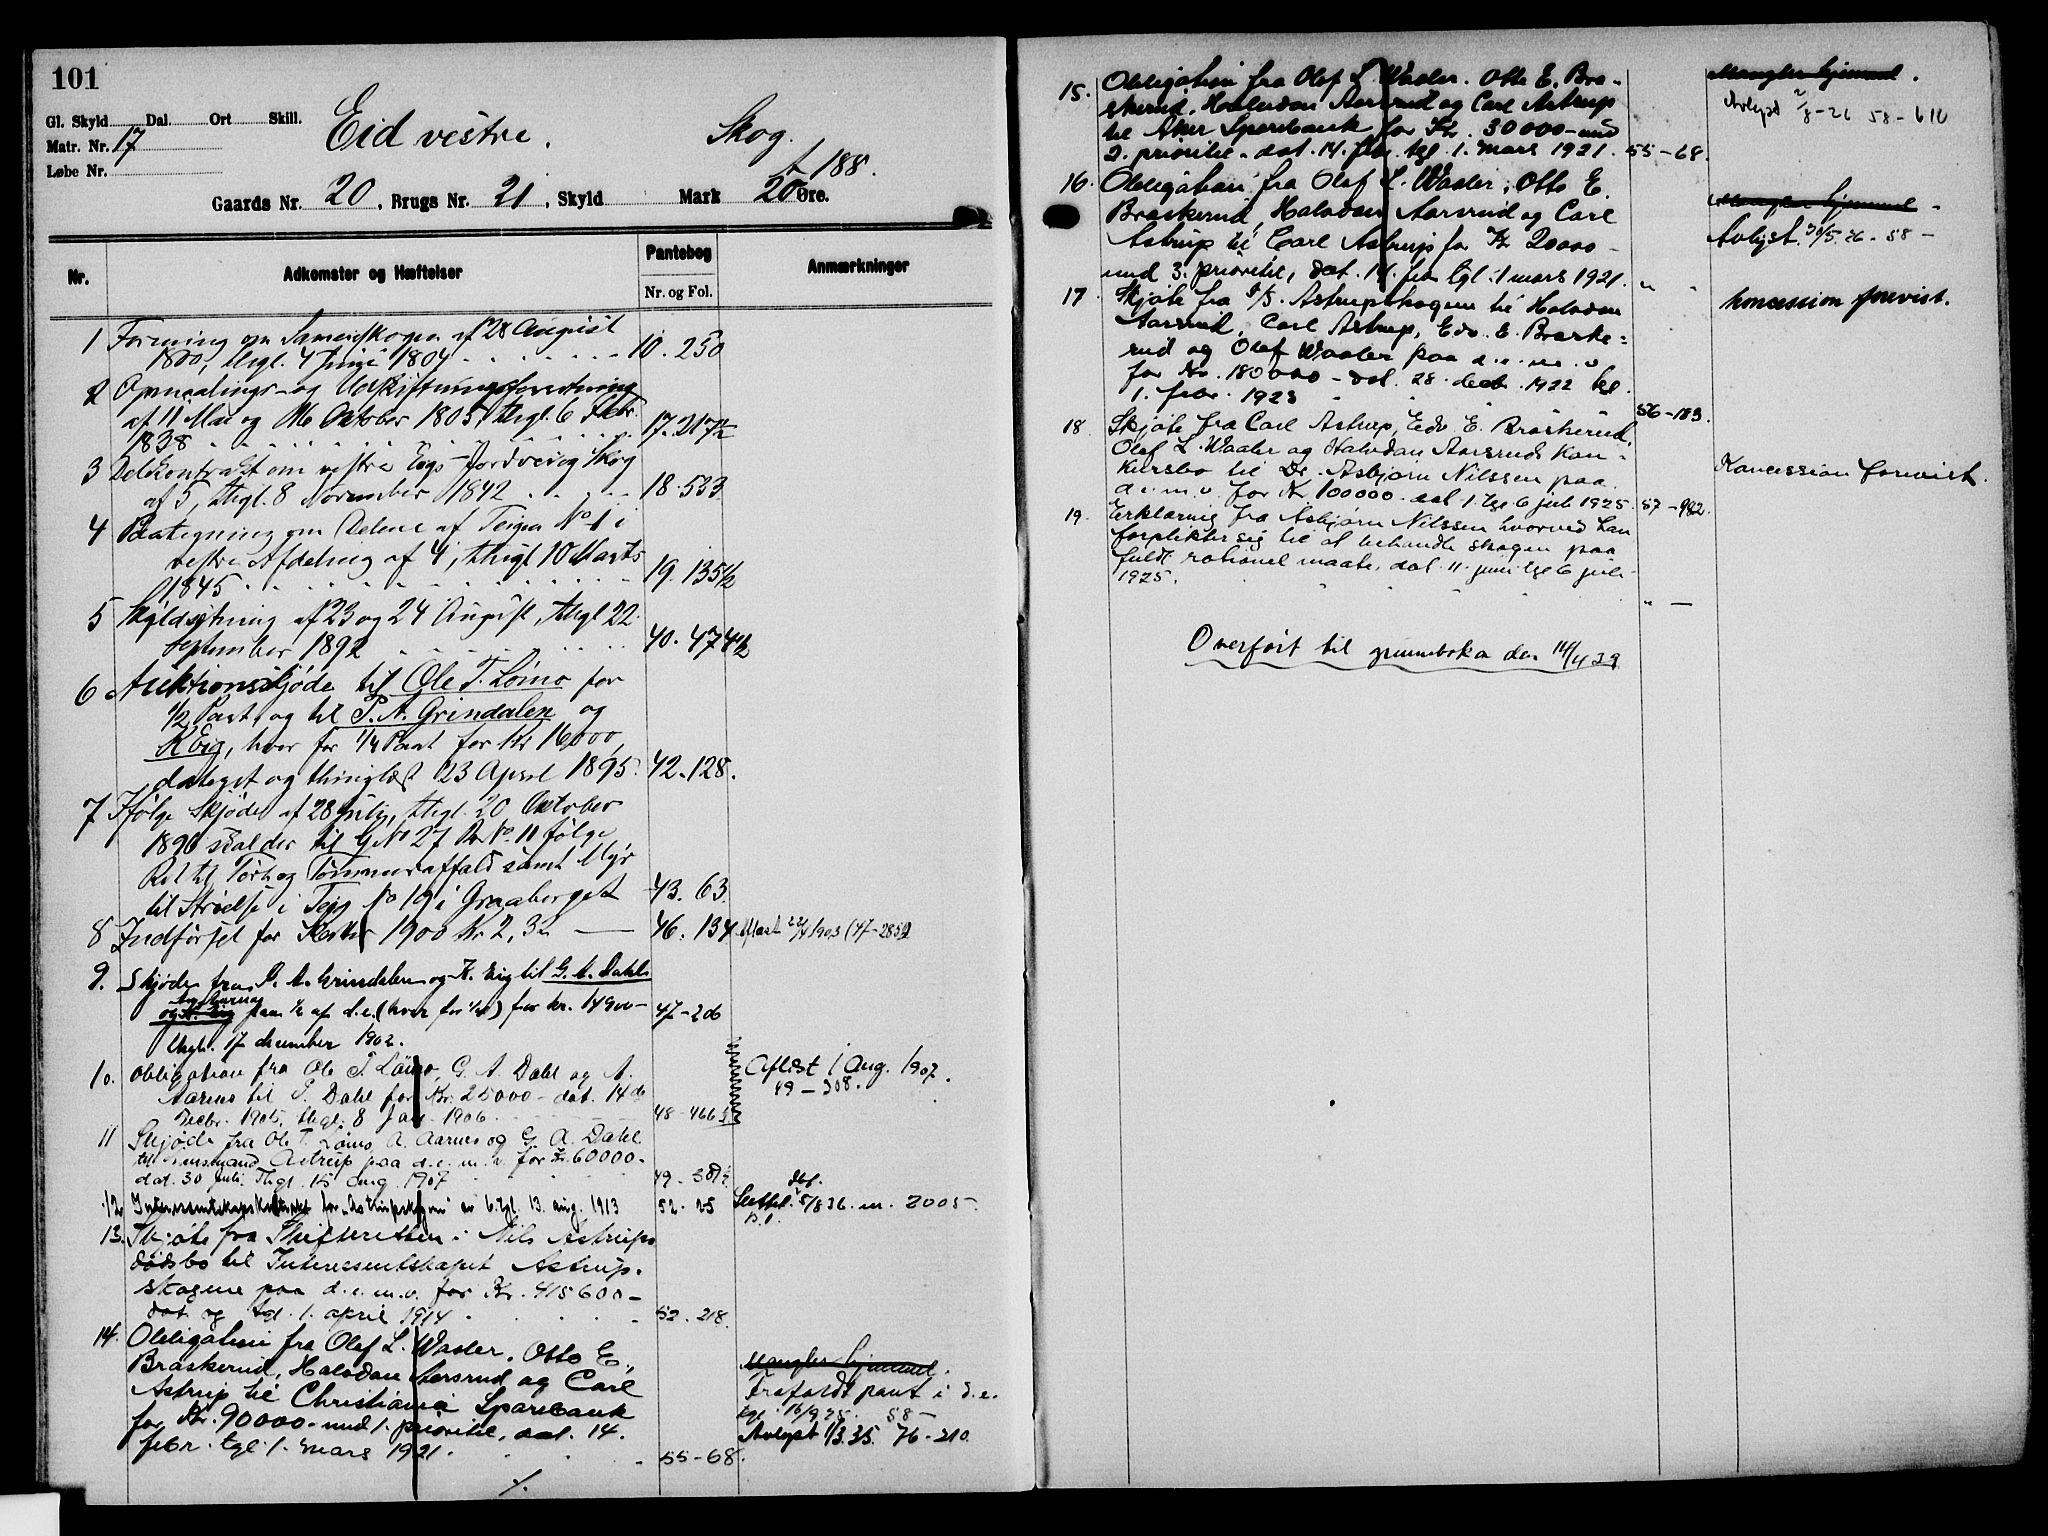 101
Gl. Skyld Dal. Ort Skill.
Matr. Nr. 17
Løbe Nr.
Eid vestre. Skog.
188.
Gaards Nr. 20, Brugs Nr. 21, Skyld Mark 20 Øre.
Nr. Adkomster og Hæftelser Pantebog Anmærkninger
Nr. og Fol.
1 Forening om Sameieskogen af 28 August
1800, thgl. 4 Juni 1804 10. 250
2 Opmaalings- og Udskiftningsforretning
af 11 Mai og 16 Oktober 1805, thgl. 6 Febr
1838 17. 217 1/2
3 Delekontrakt om vestre Eigs Jordvei og Skog
af 5, thgl. 8 November 1842 18. 533
4 Paategning om Delene af Teigen No 1 i
vestre Afdeling af 4, thgl 10 Marts
1845 19. 135 1/2
5 Skyldsetning af 23 og 24 August, thgl 22
September 1892 40. 474 1/2
6 Auktionsskjøde til Ole T. Lømo for
1/2 Part, og til P. A. Grindalen og
K Eig, hver for 1/4 Part for Kr 16000,
dateret og thinglæst 23 April 1895. 42. 128.
7 Ifølge Skjøde af 28 July, thgl. 20 Oktober
1896 skal der til G No 27 B No. 11 følge
Ret til Torv og Tømmeraffald samt Myr
til Strøelse i Teig No 19 i Graaberget 43. 63.
8 Indførsel for Skatter 1900 Kr 2,32 46. 134 Aflæst 22/4 1903 (47-285)
9. Skjøde fra P. A. Grindalen og K. Eig til G. A. Dahl
og A. Aarnes
paa 1/2 af d.e. (hver for 1/4) for kr. 14900- 47-206
thgl. 17 december 1902.
10. Obligation fra Ole T Lömo, G. A. Dahl og A. Aflæst 1 Aug. 1907.
Aarnes til P. Dahl for Kr. 25000- dat. 14de 49-308.
Decbr. 1905, thgl. 8 Jan 1906. 48-466
11 Skjöde fra Ole T. Lömo, A. Aarnes og G. A. Dahl
til Astrup paa d.e. m. v. for Kr 60000-
dat. 30 Juli Thgl. 15 Aug. 1907 49-
12. Interessentskapskontrakt for "Astrupskogen" av 6. tgl. 13. aug. 1913 52. 25 Slettet 5/8 36. m. 2005-
13. Skjøte fra Skifteretten i Nils Astrups
dødsbo til Interessentskapet Astrup-
skogene paa d.e.m.v. for Kr. 415600-
dat og tgl. 1. april 1914 52. 218.
14. Obligation fra Olef L. Waaler, Otto E.
Braskerud, Halvdan Aarsrud og Carl Mangler hjemmel.
Astrup til Christiania Sparebank Frafaldt pant i d.e.
for Kr. 90000- med 1. prioritet, dat. 14. tgl. 16/9 25. 58-
febr. tgl. 1. mars 1921. 55-68. Avlyst 1/3.35. 76-210.
15. Obligation fra Olef L. Waaler. Otto E. Bra- Mangler hjemmel.
skerud, Halvdan Aarsrud og Carl Astrup Avlyst 2/8-26 58-610
til Aker Sparebank for Kr. 30000- med
2. prioritet. dat. 14. febr. tgl. 1. mars 1921. 55-68.
16. Obligation fra Olaf L. Waaler, Otto E.
Braskerud, Halvdan Aarsrud og Carl Mangler hjemmel.
Astrup til Carl Astrup for Kr 20000- Avlyst. 30/5.26. 58-
med 3. prioritet, dat. 14. febr tgl. 1 mars 1921. " "
17 Skjøte fra I/S. Astrupskogene til Halvdan koncession forevist.
Aarsrud, Carl Astrup, Edv. E. Braske-
rud og Olef Waaler paa d.e.m.v.
for Kr. 180000- dat. 28. decbr. 1922 tgl.
1. febr. 1923 56-183.
18. Skjøte fra Carl Astrup, Edv E. Braskerud,
Olef L. Waaler og Halvdan Aarsruds kon- Koncession forevist.
kursbo til Dr. Asbjørn Nilssen paa
d.e.m.v. for Kr 100000. dat 1. tgl 6 juli 1925. 57-982.
19. Erklæring fra Asbjørn Nilssen hvorved han
forplikter sig til at behandle skogen paa
fuldt rationel maate, dat. 11. juni tgl 6 juli
1925. " —
Overført til grunnboka den 14/4 39